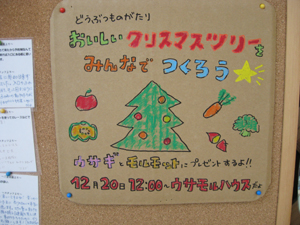 どうぶつものがたり
おいしいクリスマスツリーを
みんなでつくろう
ウサギとモルモットにプレゼントするよ!!
12月20日12:00~ウサモルハウスだよ